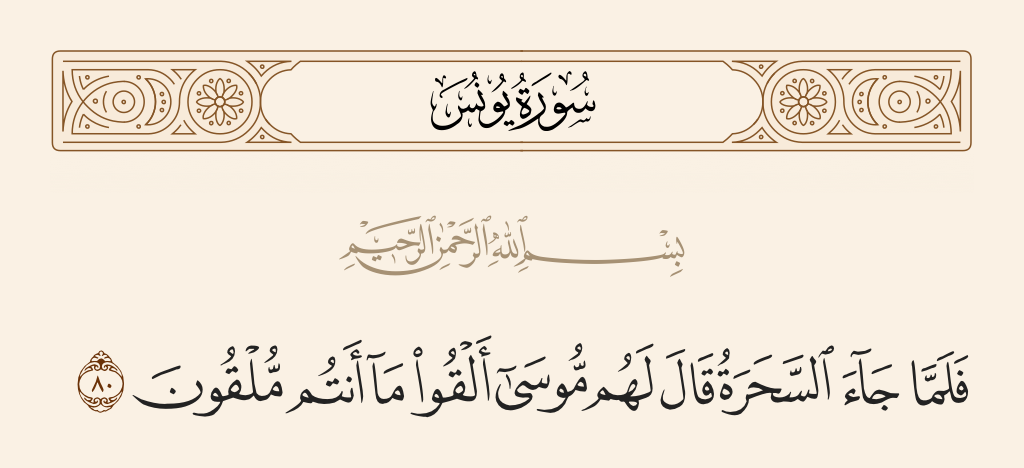 سُورَةُ يُونُسَ
بِسْمِ ٱللَّهِ ٱلرَّحْمَٰنِ ٱلرَّحِيمِ
فَلَمَّا جَآءَ ٱلسَّحَرَةُ قَالَ لَهُم مُّوسَىٰٓ أَلْقُوا۟ مَآ أَنتُم مُّلْقُونَ ٨٠